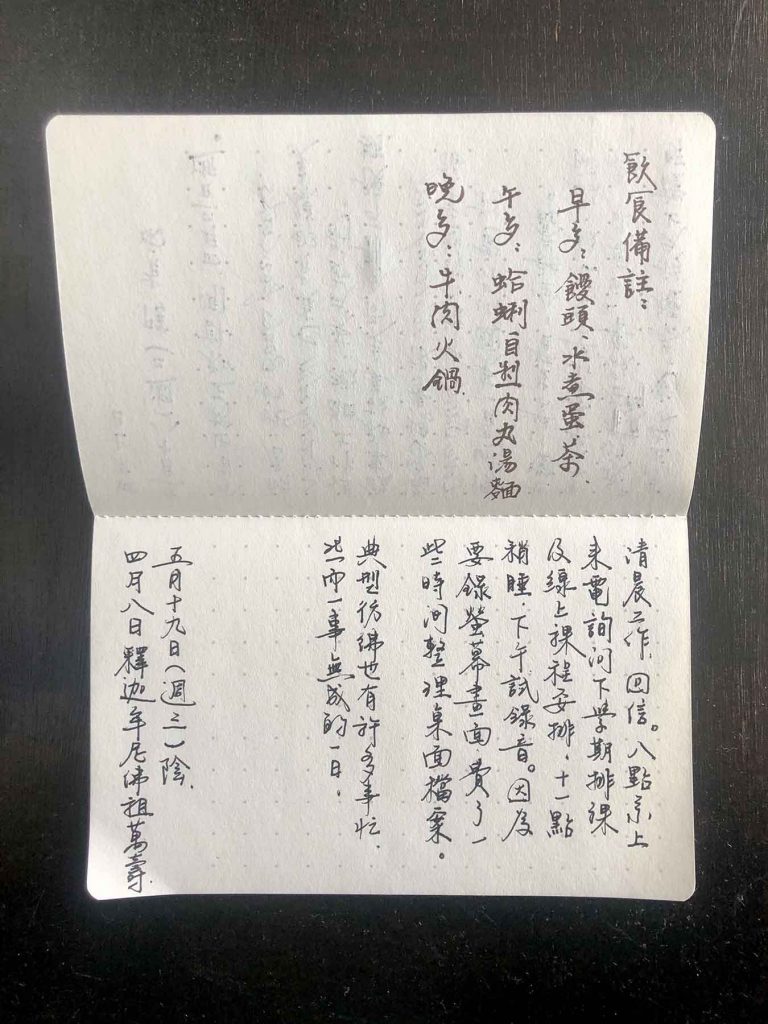 飲食備註：
早多：饅頭、水煮蛋、茶、
午多：蛤蜊自製肉丸湯麵
晚多：牛肉火鍋
清晨工作，回信。八點系上
來電詢問下學期排課
及線上課程安排，十一點
稍睡，下午試錄音。因為
要錄螢幕畫面費了一
些時間整理桌面檔案。
典型彷彿也有許多事忙，
然而一事無成的一日。
五月十九日（週二）陰、
四月八日釋迦牟尼佛祖萬壽